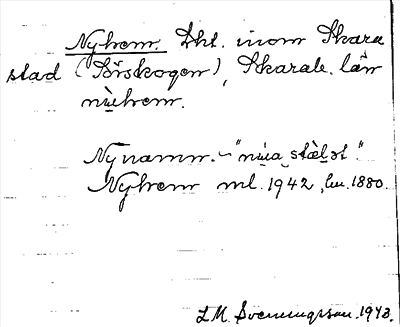 Nyhem. Lht. inom Skara
stad (Förskogen), Skarab. län
nỳhem.
Nynamn. - "nỳa stäl̀ət".
Nyhem ml. 1942, hu. 1880.
L M Svenungsson. 1943.